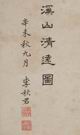 溪山清遠圖
辛未秋九月 李秋君